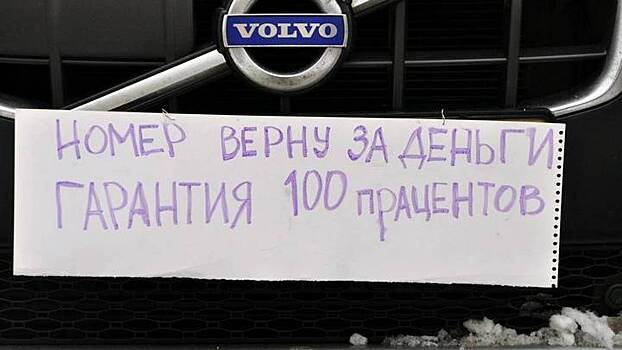 VOLVO
НОМЕР ВЕРНУ ЗА ДЕНЬГИ
ГАРАНТИЯ 100 ПРАЦЕНТОВ